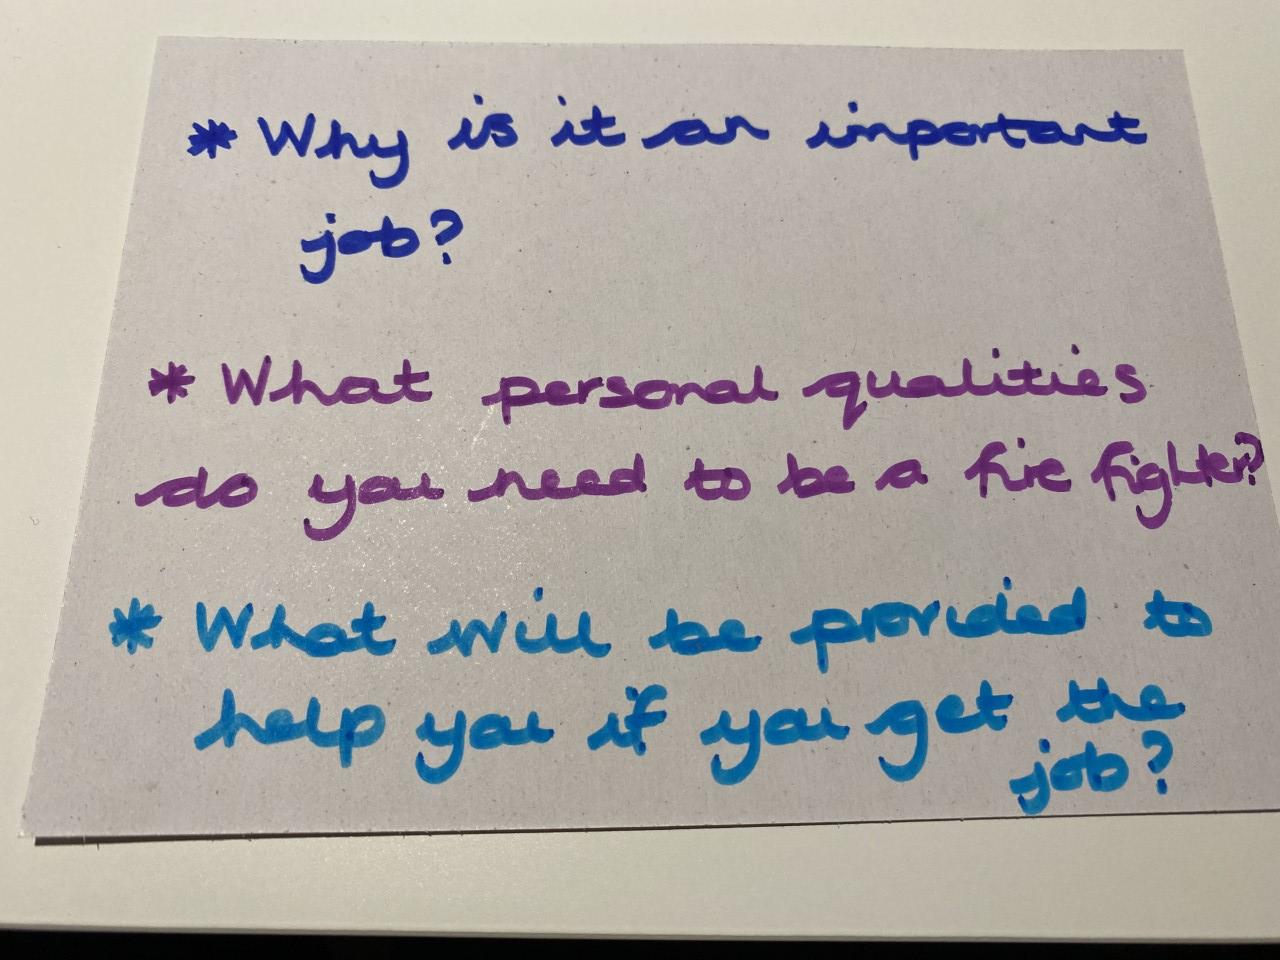 * Why is it an important
job?
* What personal qualities
do you need to be a fire fighter?
* What will be provided to
help you if you get the
job?